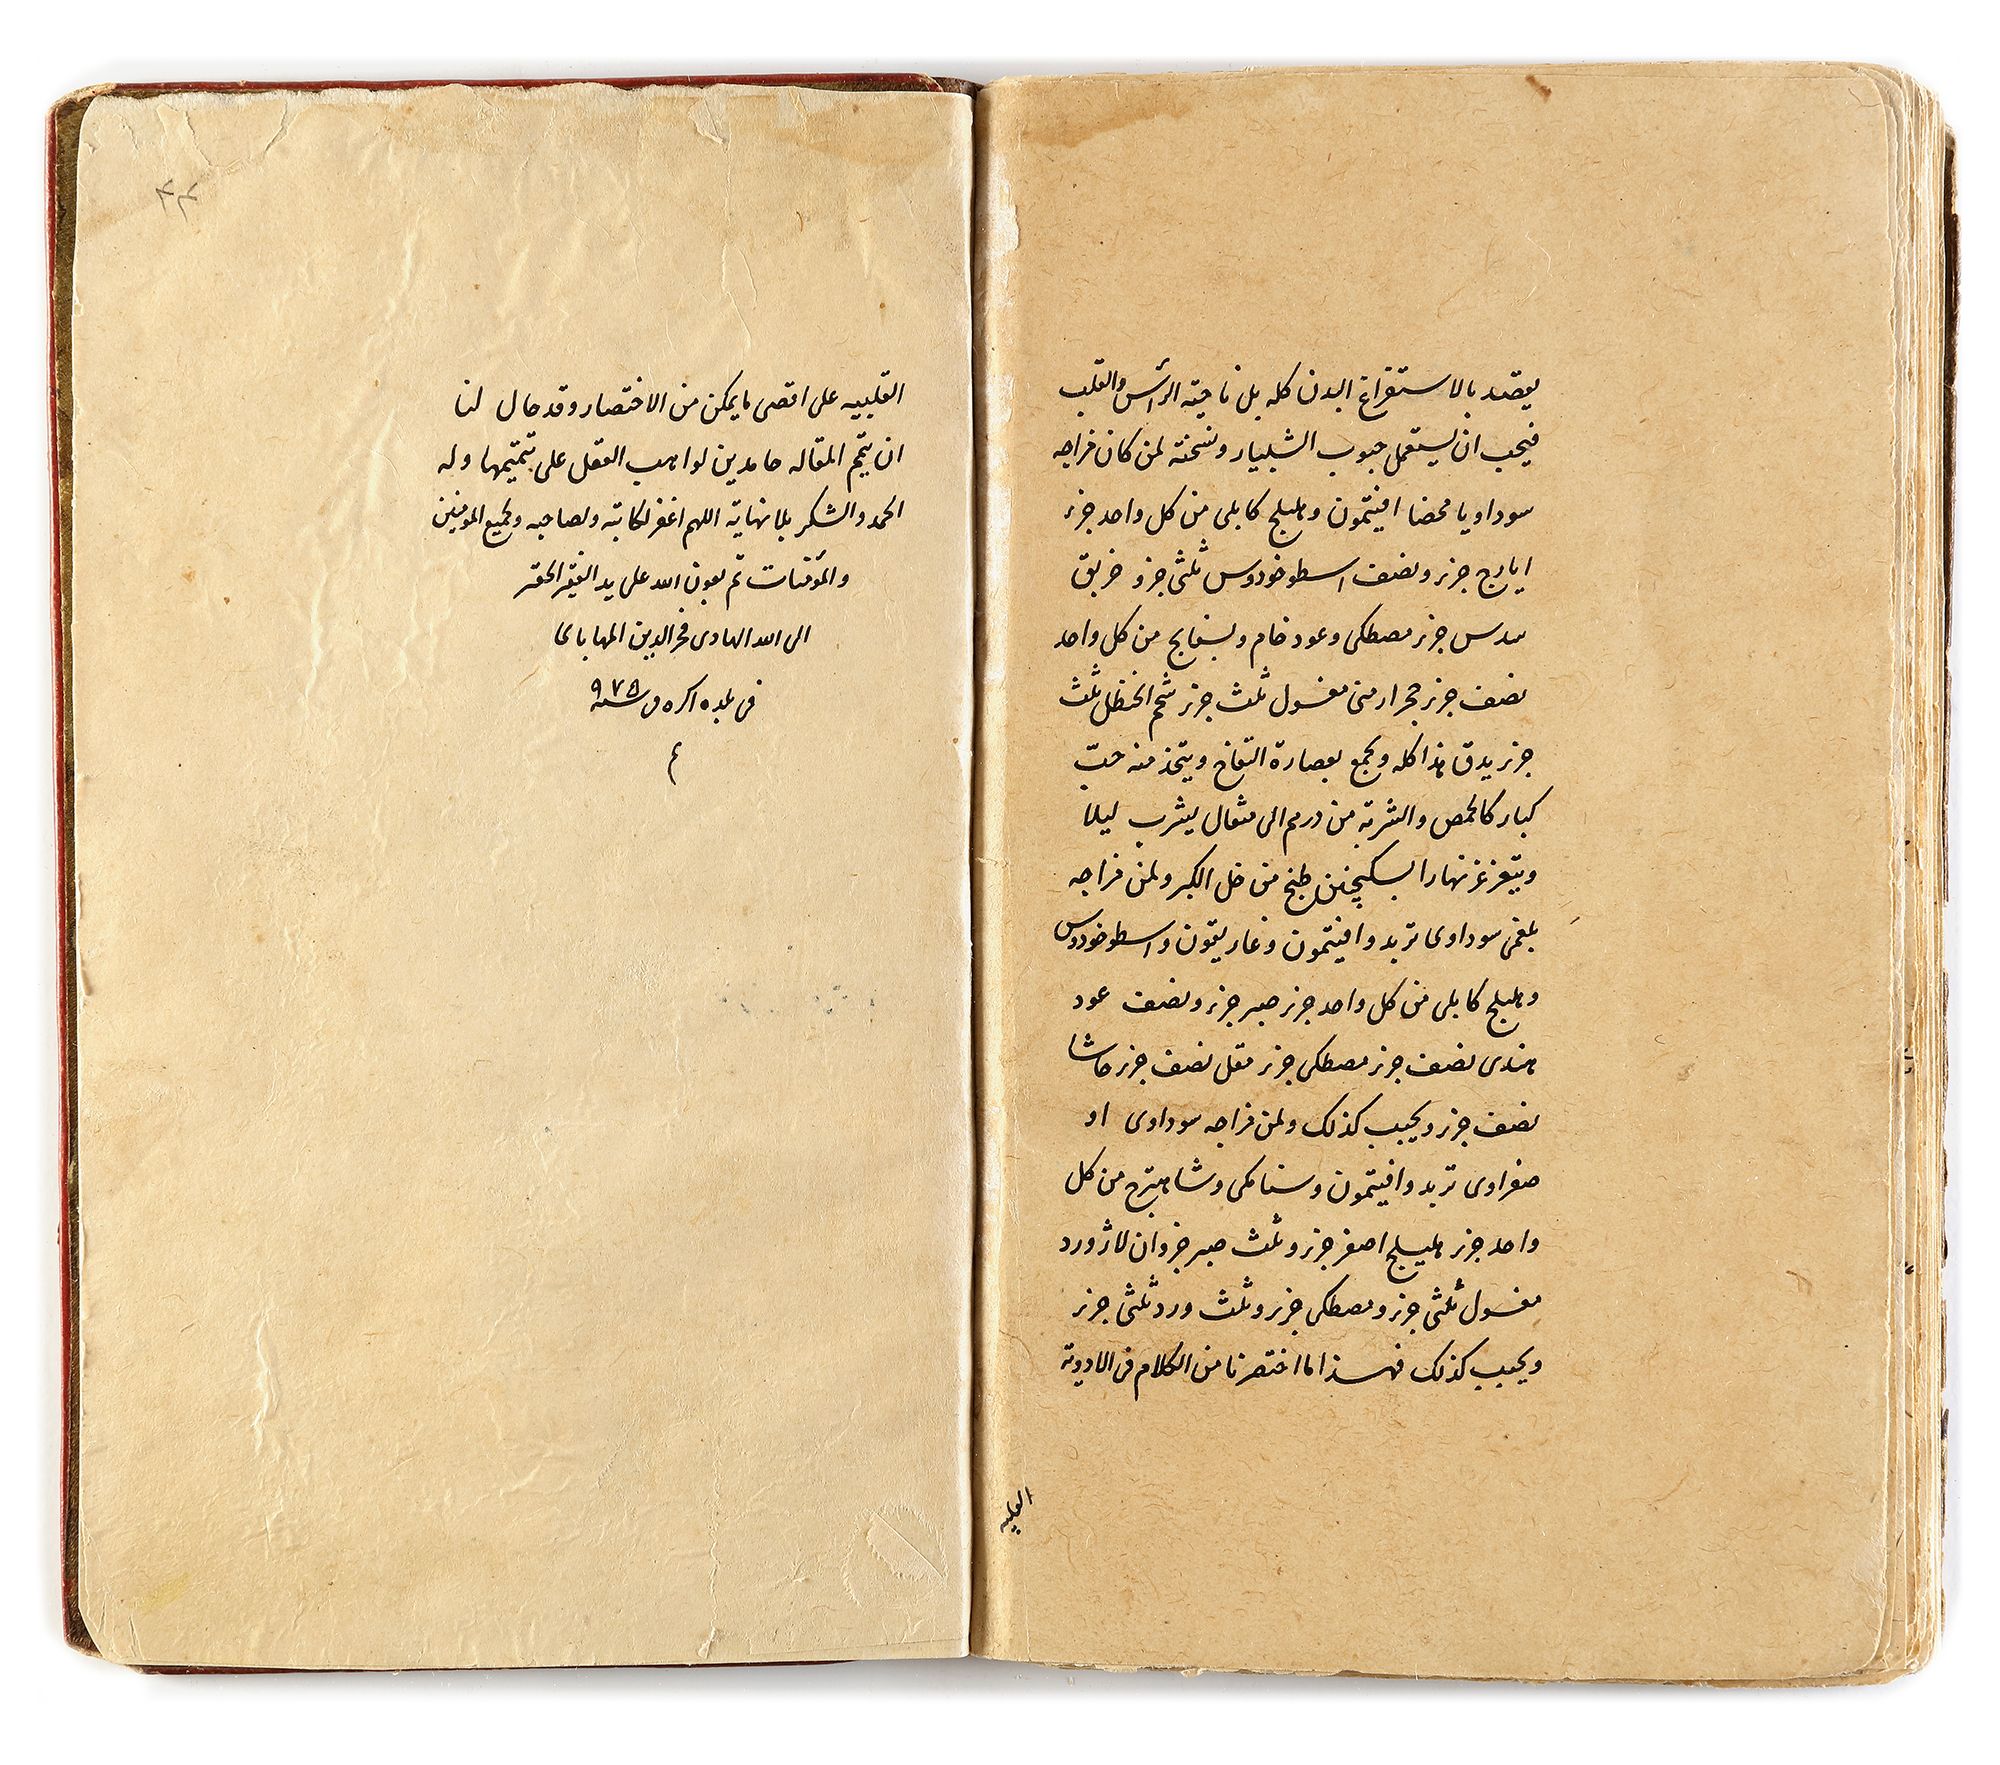 يقصد بالاستفراغ البدن كله بل ناحيته الرأس والقلب
فيجب ان يستعمل حبوب الشبليار ونسخته لمن كان مزاجه
سوداويا محضا افيتمون وهليلج كابلى من كل واحد جزء
ايارج جزء ونصف اسطوخودوس ثلثى جزو خربق
سدس جزء مصطكى وعود خام وبسفايج من كل واحد
نصف جزء حجر ارمنى مغسول ثلث جزء شحم الحنظل ثلث
جزء يدق هذا كله ويجمع بعصارة التفاح ويتخذ منه حبّ
كبار كالحمص والشربة من درهم الى مثقال يشرب ليلا
ويتغرغر نهارا بسكنجبين طبخ من خل الكبر ولمن مزاجه
بلغمى سوداوى تربد وافيتمون وغاريقون واسطوخودوس
وهليلج كابلى من كل واحد جزء صبر جزء ونصف عود
هندى نصف جزء مصطكى جزء مقل نصف جزء حاشا
نصف جزء ويحبب كذلك ولمن مزاجه سوداوى او
صفراوى تربد وافيتمون وسنا مكى وشاهترج من كل
واحد جزء هليلج اصفر جزء وثلث صبر جزوان لاژورد
مغسول ثلثى جزء ومصطكى جزء وثلث ورد ثلثى جزء
ويحبب كذلك فهذا ما اختصرنا من الكلام فى الادوية
القلبيه
٤٤
القلبيه على اقصى ما يمكن من الاختصار وقد حال لنا
ان يتم المقاله حامدين لواهب العقل على تتميمها وله
الحمد والشكر بلا نهاية اللهم اغفر لكاتبه ولصاحبه ولجميع المؤمنين
والمؤمنات تم بعون الله على يد الفقير الحقير
الى الله الهادى فخر الدين المهابادى
فى بلده اكره فى سنه ٩٧٥
م